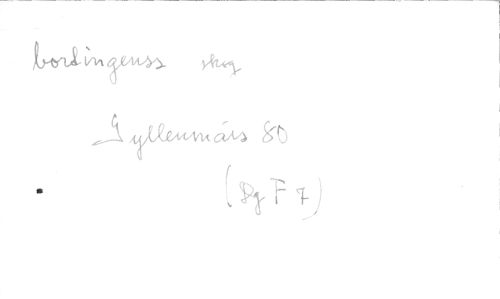 bordingenss skog
Gyllenmärs 80
(Dg F 7)